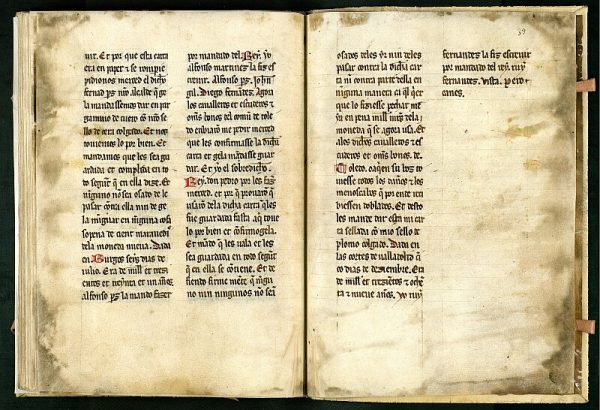 uir. Et por que esta carta
era en paper & se rompie
pidionos merced el dicho
fernad prz nro alcalde q̃ ge
la mandassemos dar en par
gamino de cuero cõ nro se
llo de cera colgado. Et nos
touiemos lo por bien. Et
mandamos que les sea gua
rdada et complida en to
do segunt q̃ en ella dize. Et
ninguno nõ sea osado de le
pasar cõtra ella nin de ge
la minguar en ninguna cosa
so pena de cient marauedis
dela moneda nueua. Dada
en Burgos seys dias de
iulio. Era de mill et trezi
entos et treynta et un años
alfonso prz la mando fazer
por mandado del Rey. yo
alfonso martinez la fiz es
creuir. Alfonso prz. Johan
gil. Diego ferrãdez. Agora
los caualleros et escuderos et
oms bonos del comũ de tole
do enbiarõ me pedir merced
que les confirmasse la dicha
carta et gela mãdasse guar
dar. Et yo el sobredicho
Rey. don pedro por les faz
merced. et por q̃ prouarõ q̃
usarõ dela dicha carta q̃ les
fue guardada fasta aq̃ toue
lo por bien et cõfirmogela.
Et mãdo q̃ les uala et les
sea guardada en todo segunt
q̃ en ella se cõtiene. Et de
fiendo firme mẽte q̃ nĩgu
no nin ningunos nõ seã
osados deles yr nin deles
pasar contra la dicha car
ta ni contra parte della en
ninguna manera ca q̃l q̃er
que lo fiziesse pechar me
ya en pena mill mrs dela
moneda q̃ se agora usa. Et
alos dichos caualleros et es
cuderos et oms bonos. de
Toledo. o aq̃en su boz to
uiesse todos los daños & los
menoscabos q̃ por ende re
biessen doblados. Et desto
les mande dar esta mi carta
sellada cõ mio sello de
plomo colgado. Dada en
las cortes de ualladolit cĩ
co dias de dezienbre. Era
de mill et trezientos et ochẽ
ta et nueue años. yo ruy
39
fernandez la fiz escreuir
por mandado del rey. ruy
fernandez. uista. Pero
canes.